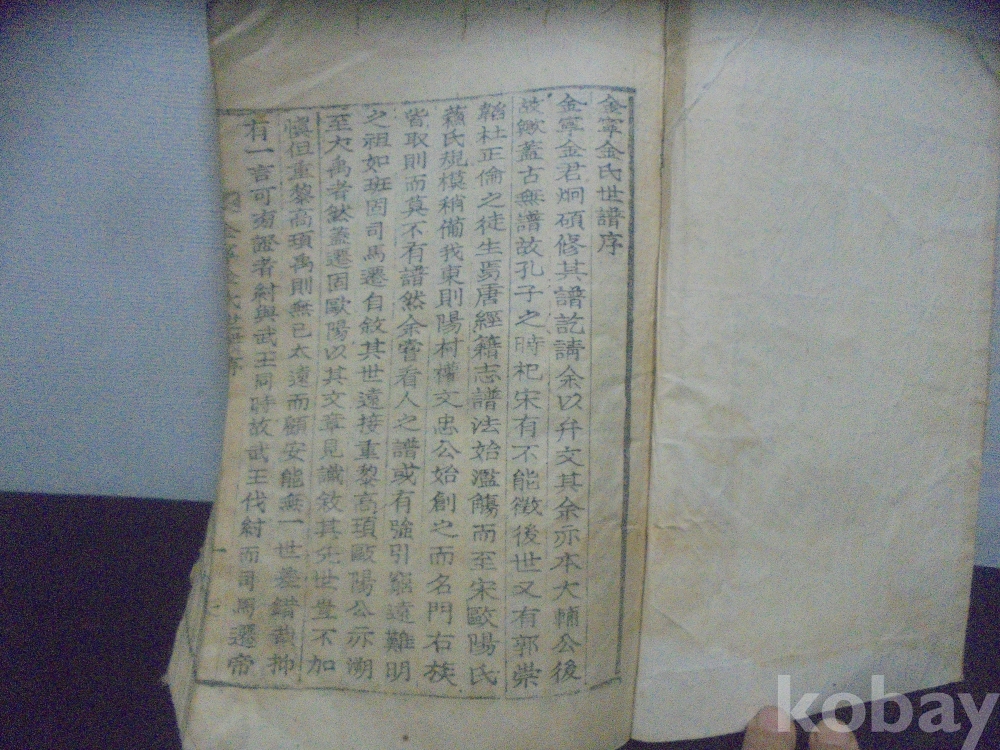 金寧金氏世譜序
金寧金君炯碩修其譜訖請余以弁文其余亦本大輔公後
故歟蓋古無譜故孔子之時杞宋有不能徵後世又有郭崇
韜杜正倫之徒生焉唐經籍志譜法始濫觴而至宋歐陽氏
蘇氏規模稍備我東則陽村權文忠公始創之而名門右族
皆取則而莫不有譜然余嘗看人之譜或有強引窮遠難明
之祖如班固司馬遷自敘其世遠接重黎高頊歐陽公亦溯
至大禹者然蓋遷固歐陽以其文章見識敘其先世豈不加
愼但重黎高頊禹則無已太遠而顧安能無一世差錯哉抑
有一言可旁證者紂與武王同時故武王伐紂而司馬遷帝
金寧金氏世譜序
一
kobay